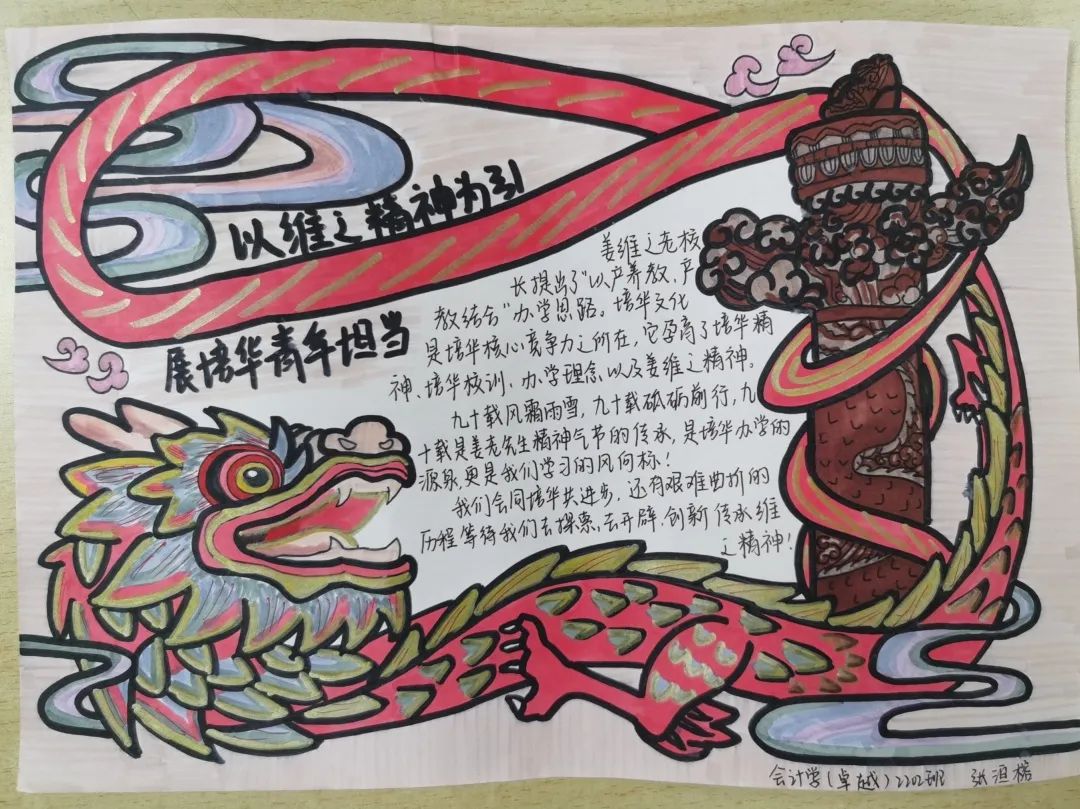 以维之精神为引
展培华青年担当
姜维之老校
长提出了"以产养教、产
教结合"办学思路。培华文化
是培华核心竞争力之所在，它孕育了培华精
神、培华校训、办学理念以及姜维之精神。
九十载风霜雨雪，九十载砥砺前行，九
十载是姜老先生精神气节的传承，是培华办学的
源泉，更是我们学习的风向标！
我们会同培华共进步，还有艰难曲折的
历程等待我们去探索、去开辟、创新传承维
之精神！
会计学(卓越)2202班 张洹